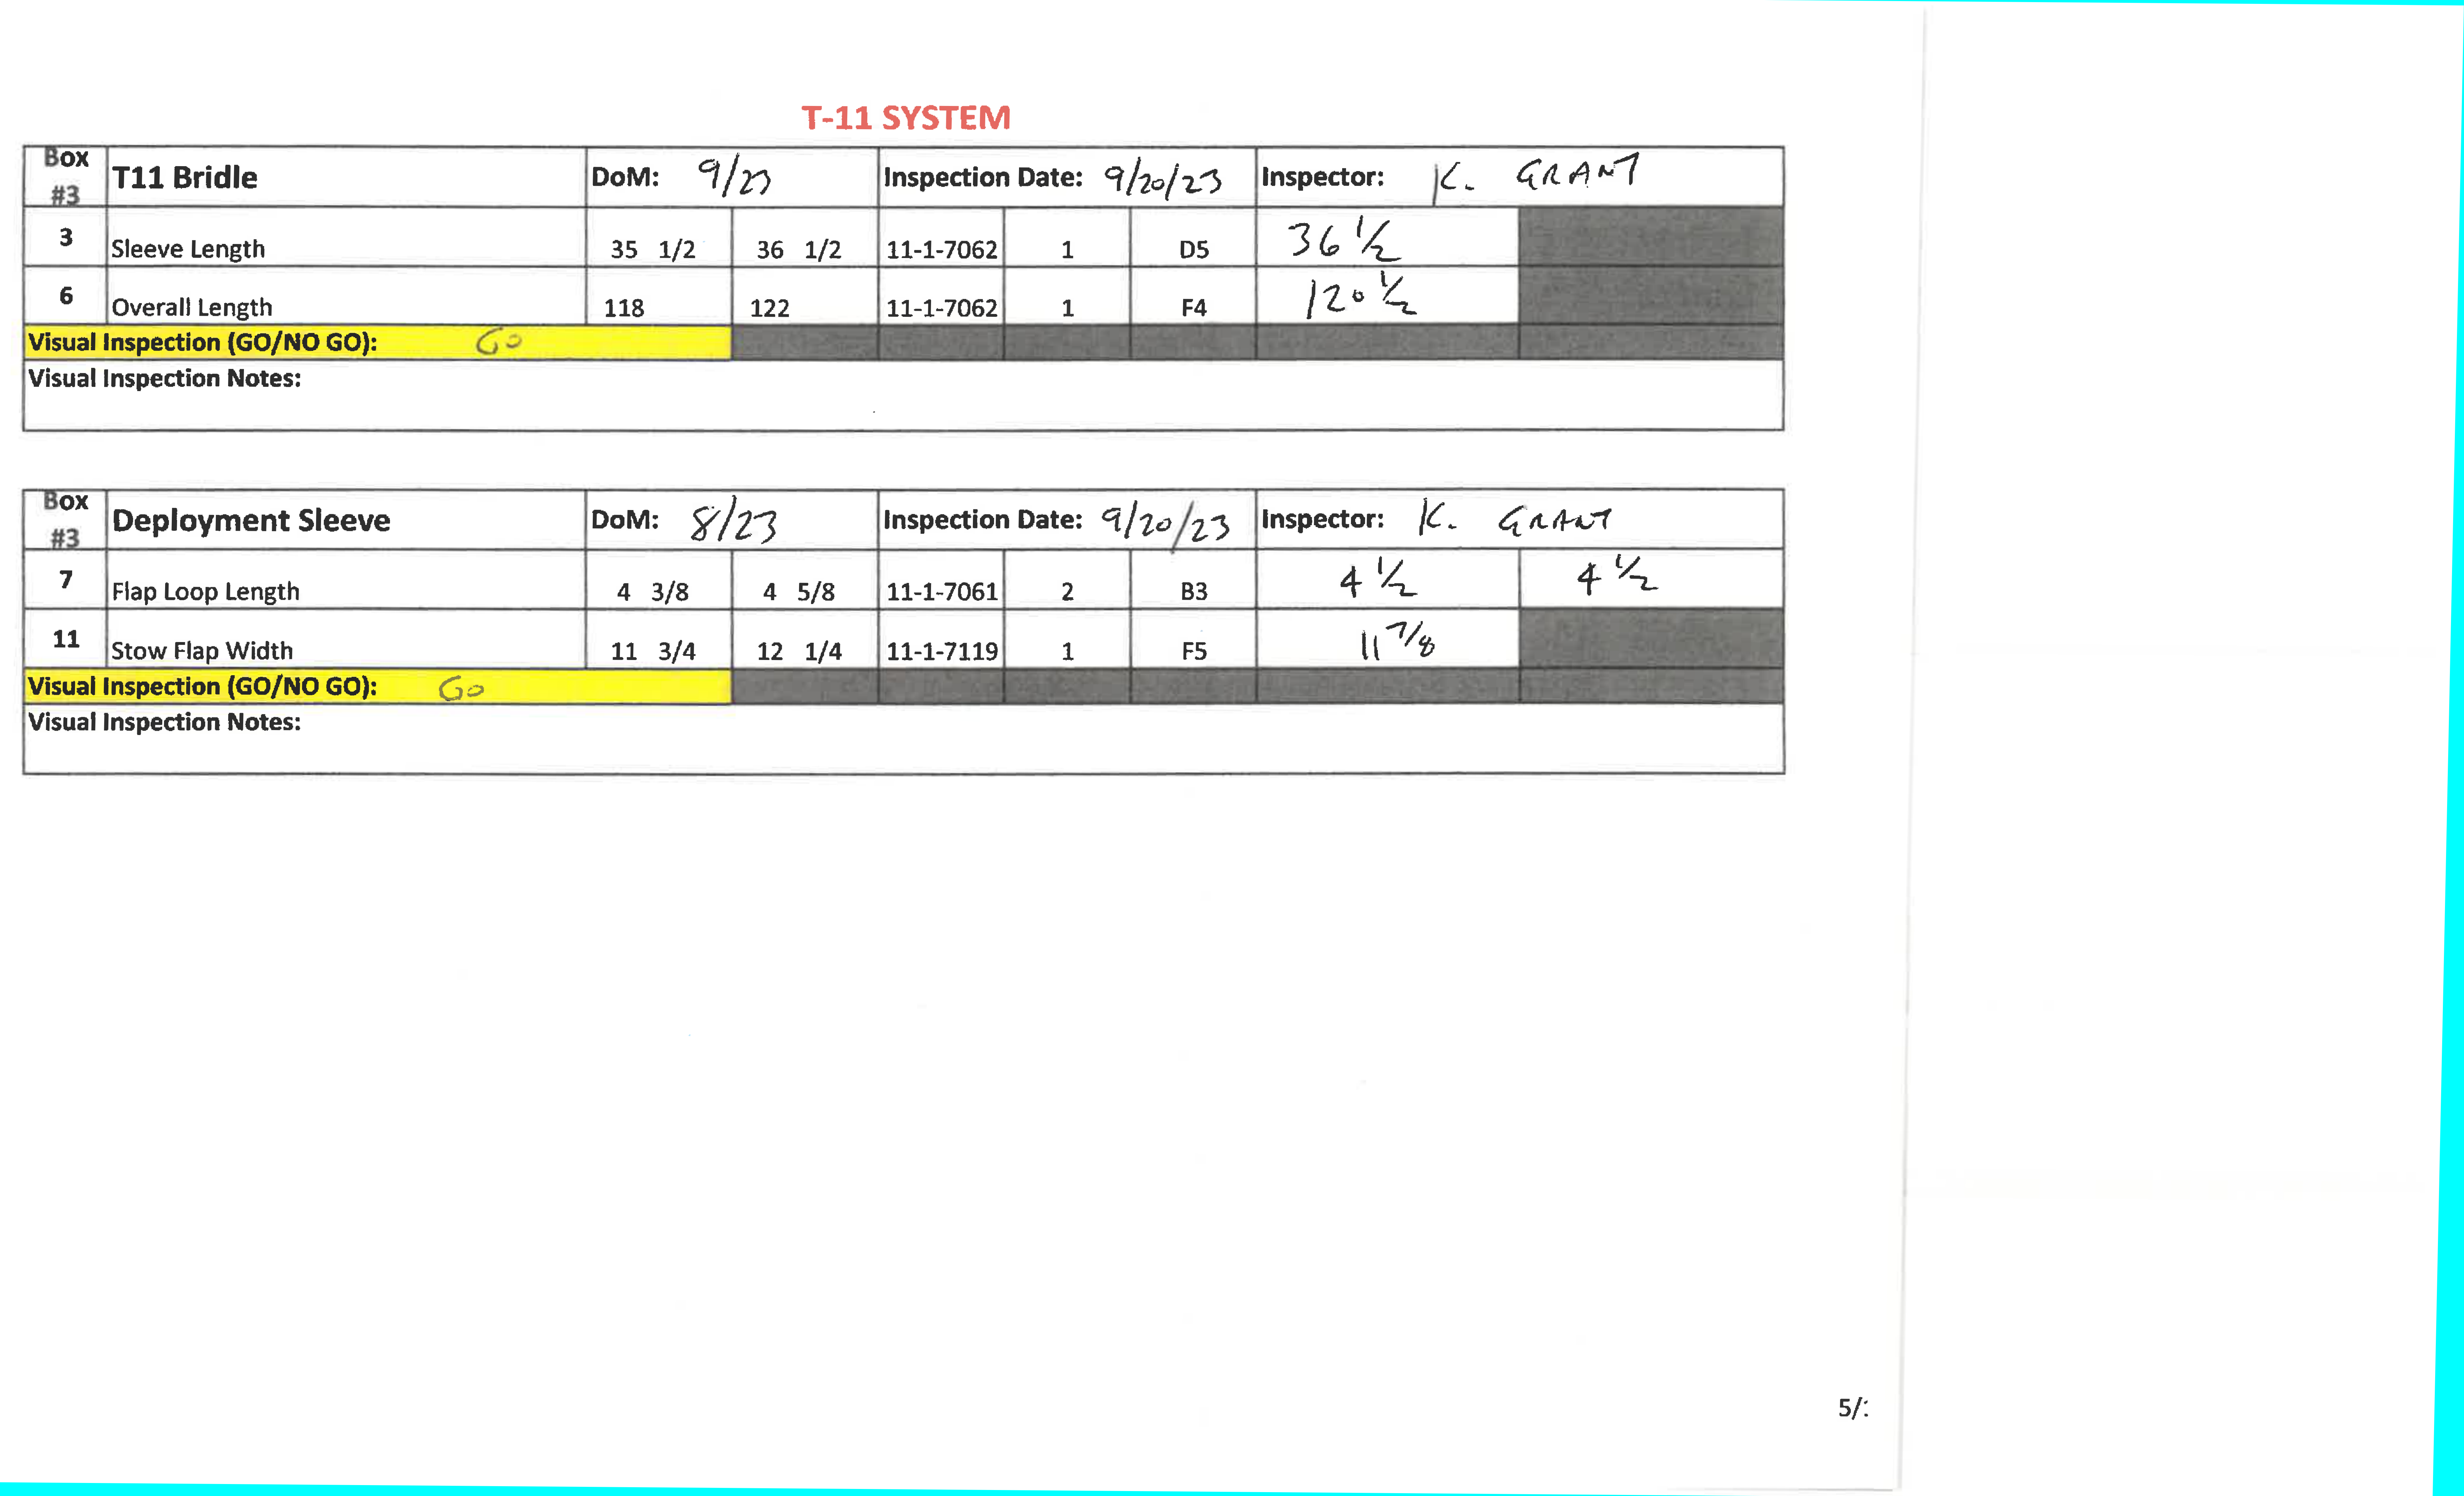 T-11 SYSTEM
Box #3 T11 Bridle DoM: 9/23 Inspection Date: 9/20/23 Inspector: K. GRANT
3 Sleeve Length 35 1/2 36 1/2 11-1-7062 1 D5 36 1/2
6 Overall Length 118 122 11-1-7062 1 F4 120 1/2
Visual Inspection (GO/NO GO): GO
Visual Inspection Notes:
Box #3 Deployment Sleeve DoM: 8/23 Inspection Date: 9/20/23 Inspector: K. GRANT
7 Flap Loop Length 4 3/8 4 5/8 11-1-7061 2 B3 4 1/2 4 1/2
11 Stow Flap Width 11 3/4 12 1/4 11-1-7119 1 F5 11 7/8
Visual Inspection (GO/NO GO): GO
Visual Inspection Notes:
5/